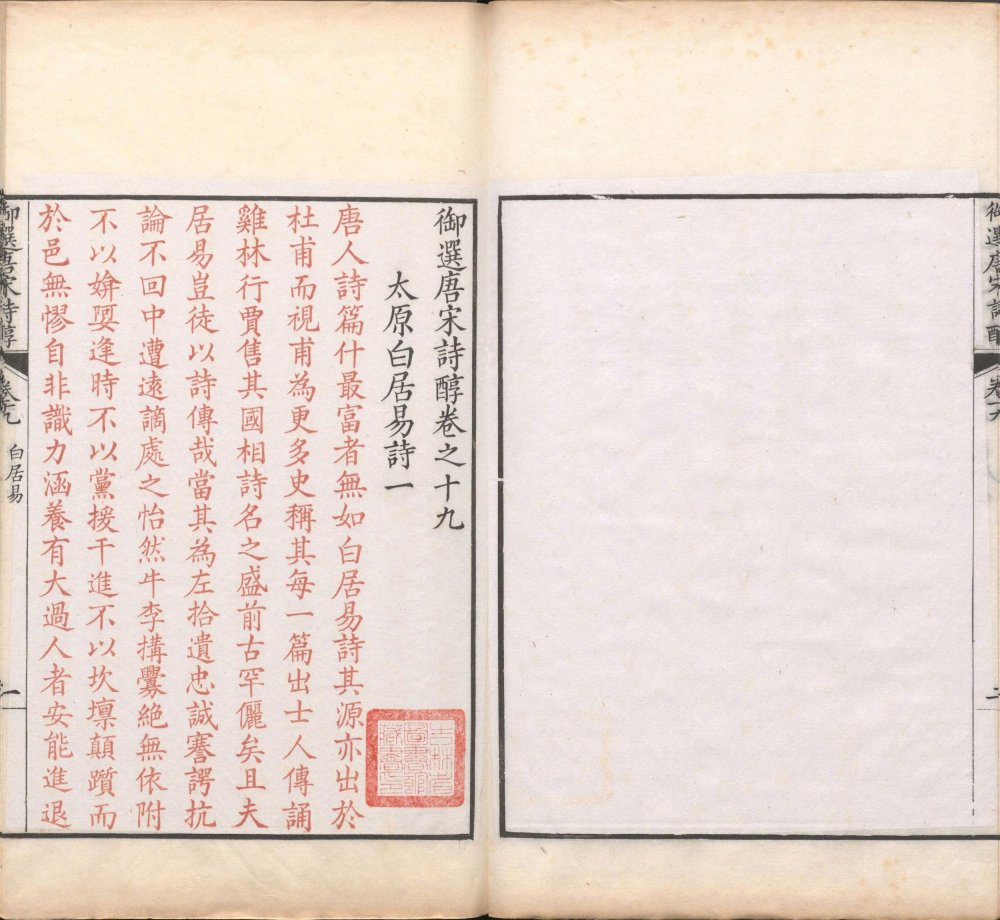 御選唐宋詩醇
卷十九
御選唐宋詩醇卷之十九
太原白居易詩一
唐人詩篇什最富者無如白居易詩其源亦出於
杜甫而視甫為更多史稱其每一篇出士人傳誦
雞林行賈售其國相詩名之盛前古罕儷矣且夫
居易豈徒以詩傳哉當其為左拾遺忠誠謇諤抗
論不回中遭遠謫處之怡然牛李搆釁絕無依附
不以媕娿逢時不以黨援干進不以坎壈顛躓而
於邑無憀自非識力涵養有大過人者安能進退
御選唐宋詩醇
卷十九
白居易
一
吉林省
圖書館
藏書之